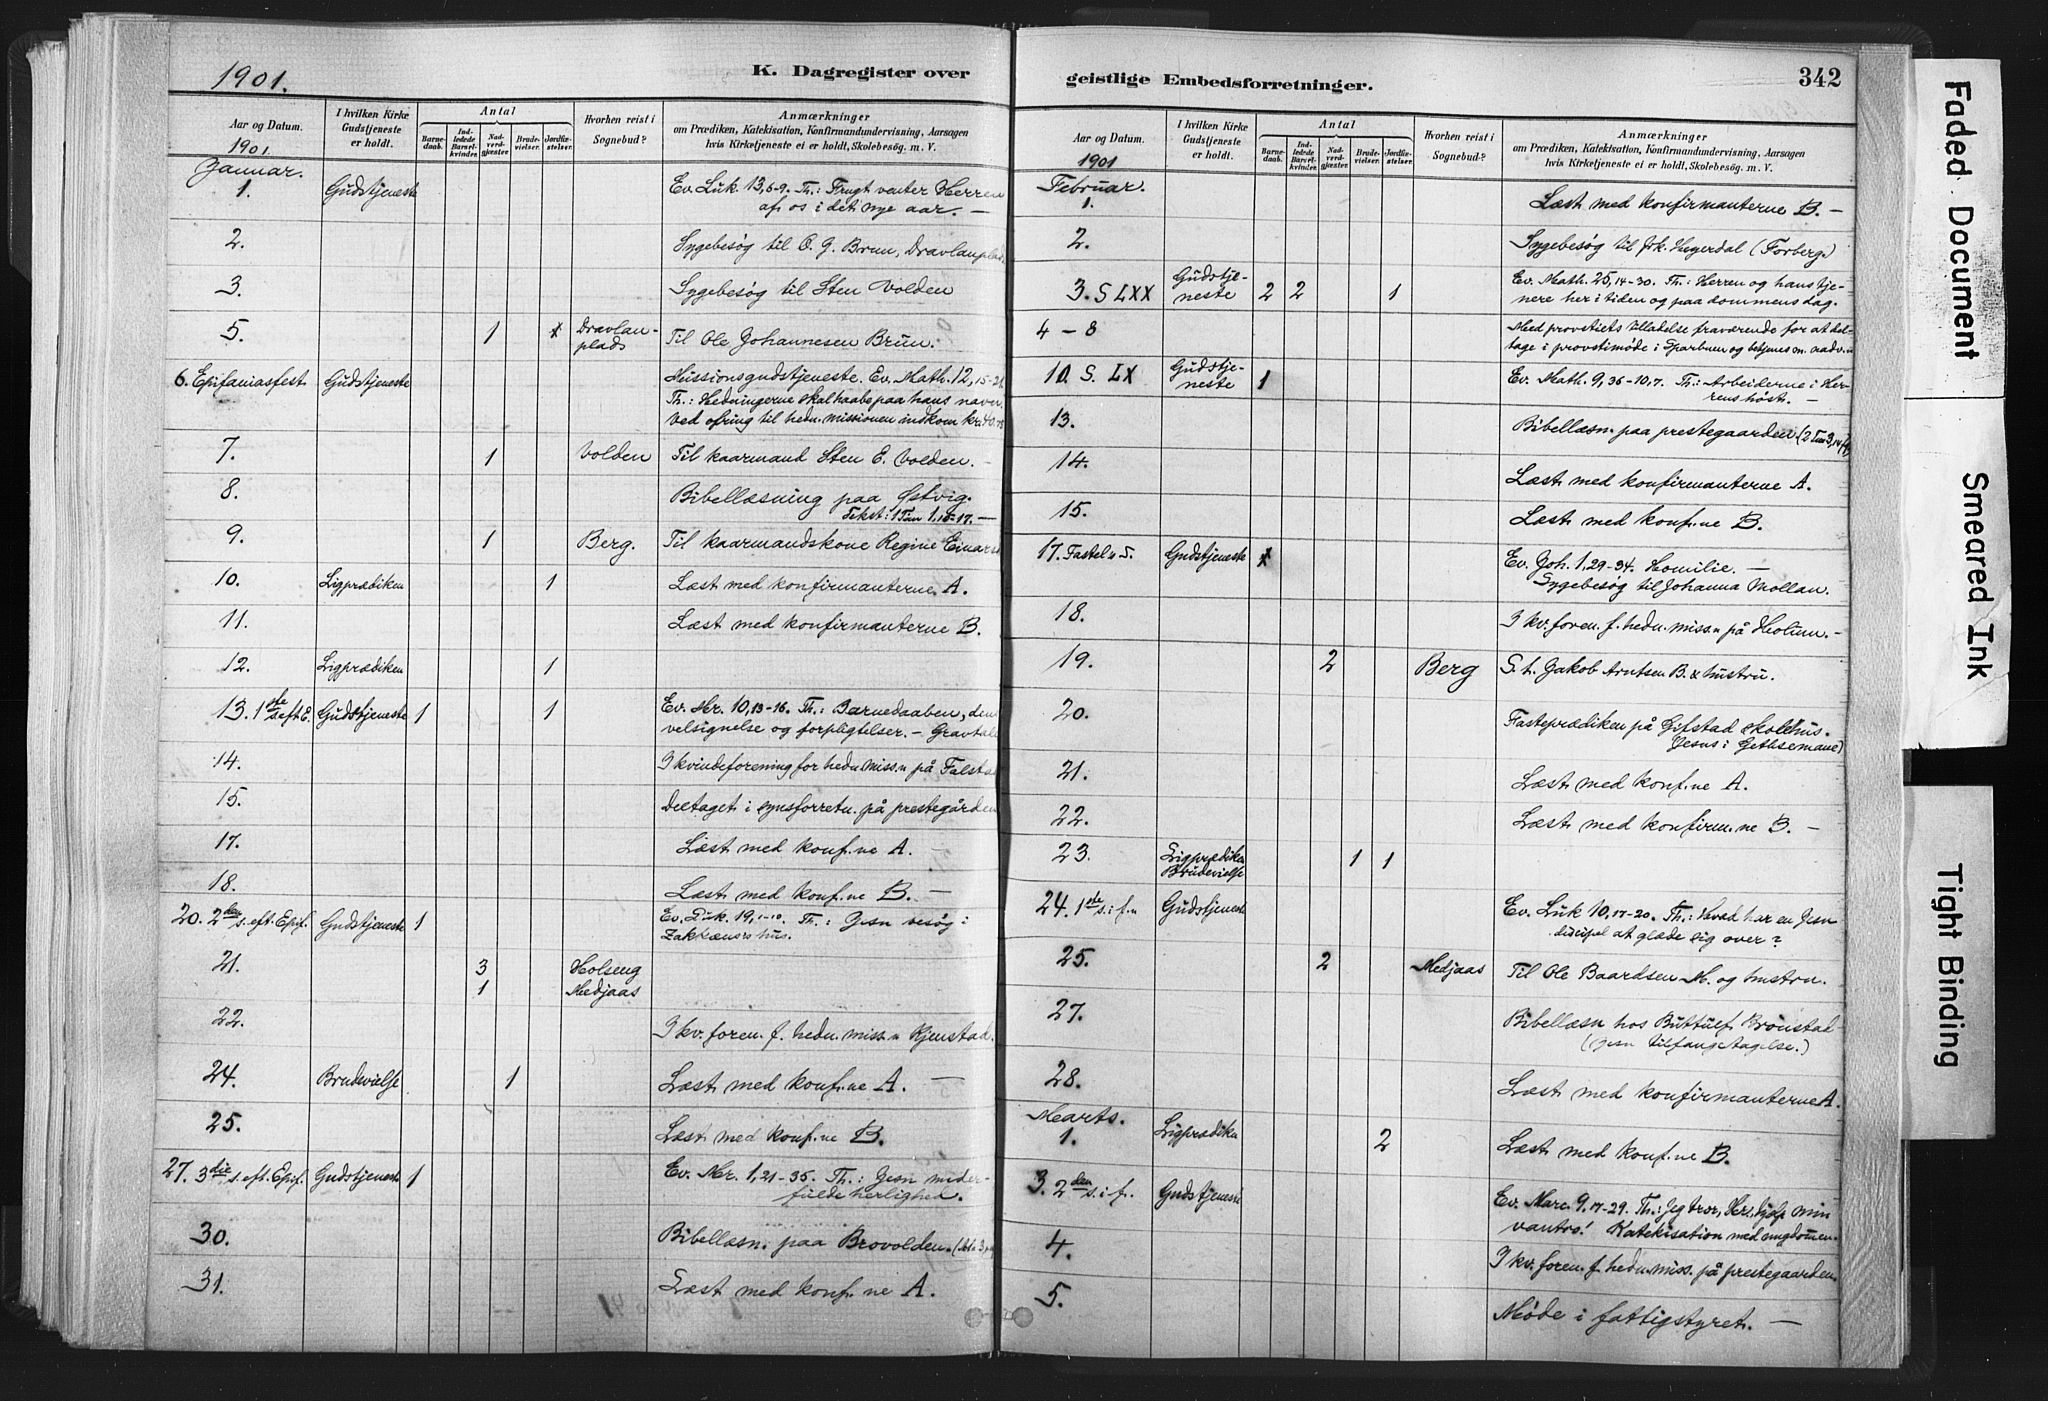 1901.
K. Dagregister over
Aar og Datum.
I hvilken Kirke Gudstjeneste er holdt.
Antal
Barnedaab.
Indledede Barselkvinder.
Nadverdgjæster.
Brudevielser.
Jordfæstelser.
Hvorhen reist i Sognebud?
Anmærkninger
om Prædiken, Katekisation, Konfirmandundervisning, Aarsagen
hvis Kirketjeneste ei er holdt, Skolebesøg. m. V.
1901.
Januar.
1. Gudstjeneste Ev. Luk. 13,6-9. Th.: Frugt venter Herren
af os i det nye aar. —
2. Sygebesøg til O. G. Brun, Dravlanplads
3. Sygebesøg til Sten Volden
5. 1 Dravlan-
plads Til Ole Johannesen Brun.
6. Epifaniasfest. Gudstjeneste Missionsgudstjeneste. Ev. Math. 12, 15-21.
Th.: Hedningerne skal haabe paa hans navn.
Ved ofring til hedn. missionen indkom kr.
7. 1 Volden Til kaarmand Sten E. Volden. —
8. Bibellæsning paa Østvig.
Tekst: 1 Tim 1,15-17. —
9. 1 Berg. Til kaarmandskone Regine Einarsd
10. Ligprædiken 1 Læst med konfirmanterne A.
11. Læst med konfirmanterne B.
12. Ligprædiken 1
13. 1ste s. eft. E. Gudstjeneste 1 1 Ev. Mr. 10,13-16. Th.: Barnedaaben, dens
velsignelse og forpligtelser. — Gravtale
14. I kvindeforening for hedn. miss.n på Falstad
15. Deltaget i synsforretn. på prestegården
17. Læst med konf.ne A. —
18. Læst med konf.ne B. —
20. 2den s. eft. Epif. Gudstjeneste 1 Ev. Luk. 19,1-10. Th.: Jesu besøg i
Zakkæus's hus.
21. 3 Holseng
1 Medjaas
22. I kv. foren. f. hedn. miss.n Kjenstad.
24. Brudevielse 1 Læst med konf.ne A. —
25. Læst med konf.ne B.
27. 3die s. eft. Epif. Gudstjeneste 1 Ev. Mr. 1,21-35. Th.: Jesu under-
fulde herlighed.
30. Bibellæsn. paa Brovolden.
31. Læst med konf.ne A.
geistlige Embedsforretninger.
342
Aar og Datum.
I hvilken Kirke Gudstjeneste er holdt.
Antal
Barnedaab.
Indledede Barselkvinder.
Nadverdgjæster.
Brudevielser.
Jordfæstelser.
Hvorhen reist i Sognebud?
Anmærkninger
om Prædiken, Katekisation, Konfirmandundervisning, Aarsagen
hvis Kirketjeneste ei er holdt, Skolebesøg. m. V.
1901
Februar.
1. Læst med konfirmanterne B. —
2. Sygebesøg til Joh. Hegerdal (Forberg)
3. S LXX Gudstje-
neste 2 2 1 Ev. Math. 25,14-30. Th.: Herren og hans tje-
nere her i tiden og paa dommens dag.
4 - 8 Med provstiets tilladelse fraværende for at del-
tage i provstimøde i Sparbuen og betjenes m. nadv.n
10. S. LX Gudstje-
neste 1 Ev. Math. 9,36-10,7. Th.: Arbeiderne i Her-
rens høst. —
13. Bibellæsn. paa prestegaarden (2 Tim 3,14 ff)
14. Læst med konfirmanterne A.
15. Læst med konf.ne B.
17. Fastel.s S. Gudstjeneste Ev. Joh. 1,29-34. Homilie. —
Sygebesøg til Johanna Mollan.
18. I kv. foren. f. hedn. miss.n på Holum. —
19. 2 Berg S. t. Jakob Arntsen B. & hustru.
20. Fasteprædiken på Gifstad skolehus.
Jesus i Gethsemane)
21. Læst med konf.ne A.
22. Læst med konfirm.ne B. —
23. Ligprædiken
Brudevielse 1 1
24. 1ste s. i f.n Gudstjeneste Ev. Luk 10,17-20. Th.: Hvad har en Jesu
discipel at glæde sig over?
25. 2 Medjaas Til Ole Baardsen M. og hustru.
27. Bibellæsn hos Buttulf Brønstad
(Jesu tilfangetagelse.)
28. Læst med konfirmanterne A.
Marts.
1. Ligprædiken 2 Læst med konf.ne B.
3. 2den s. i f. Gudstjeneste Ev. Marc. 9,17-29. Th.: Jeg tror, Her, hjælp min
vantro! Katekisation med ungdommen.
4. I kv. foren. f. hedn. miss. på prestegaarden.
5. Møde i fattigstyret. —
Faded Document
Smeared Ink
Tight Binding